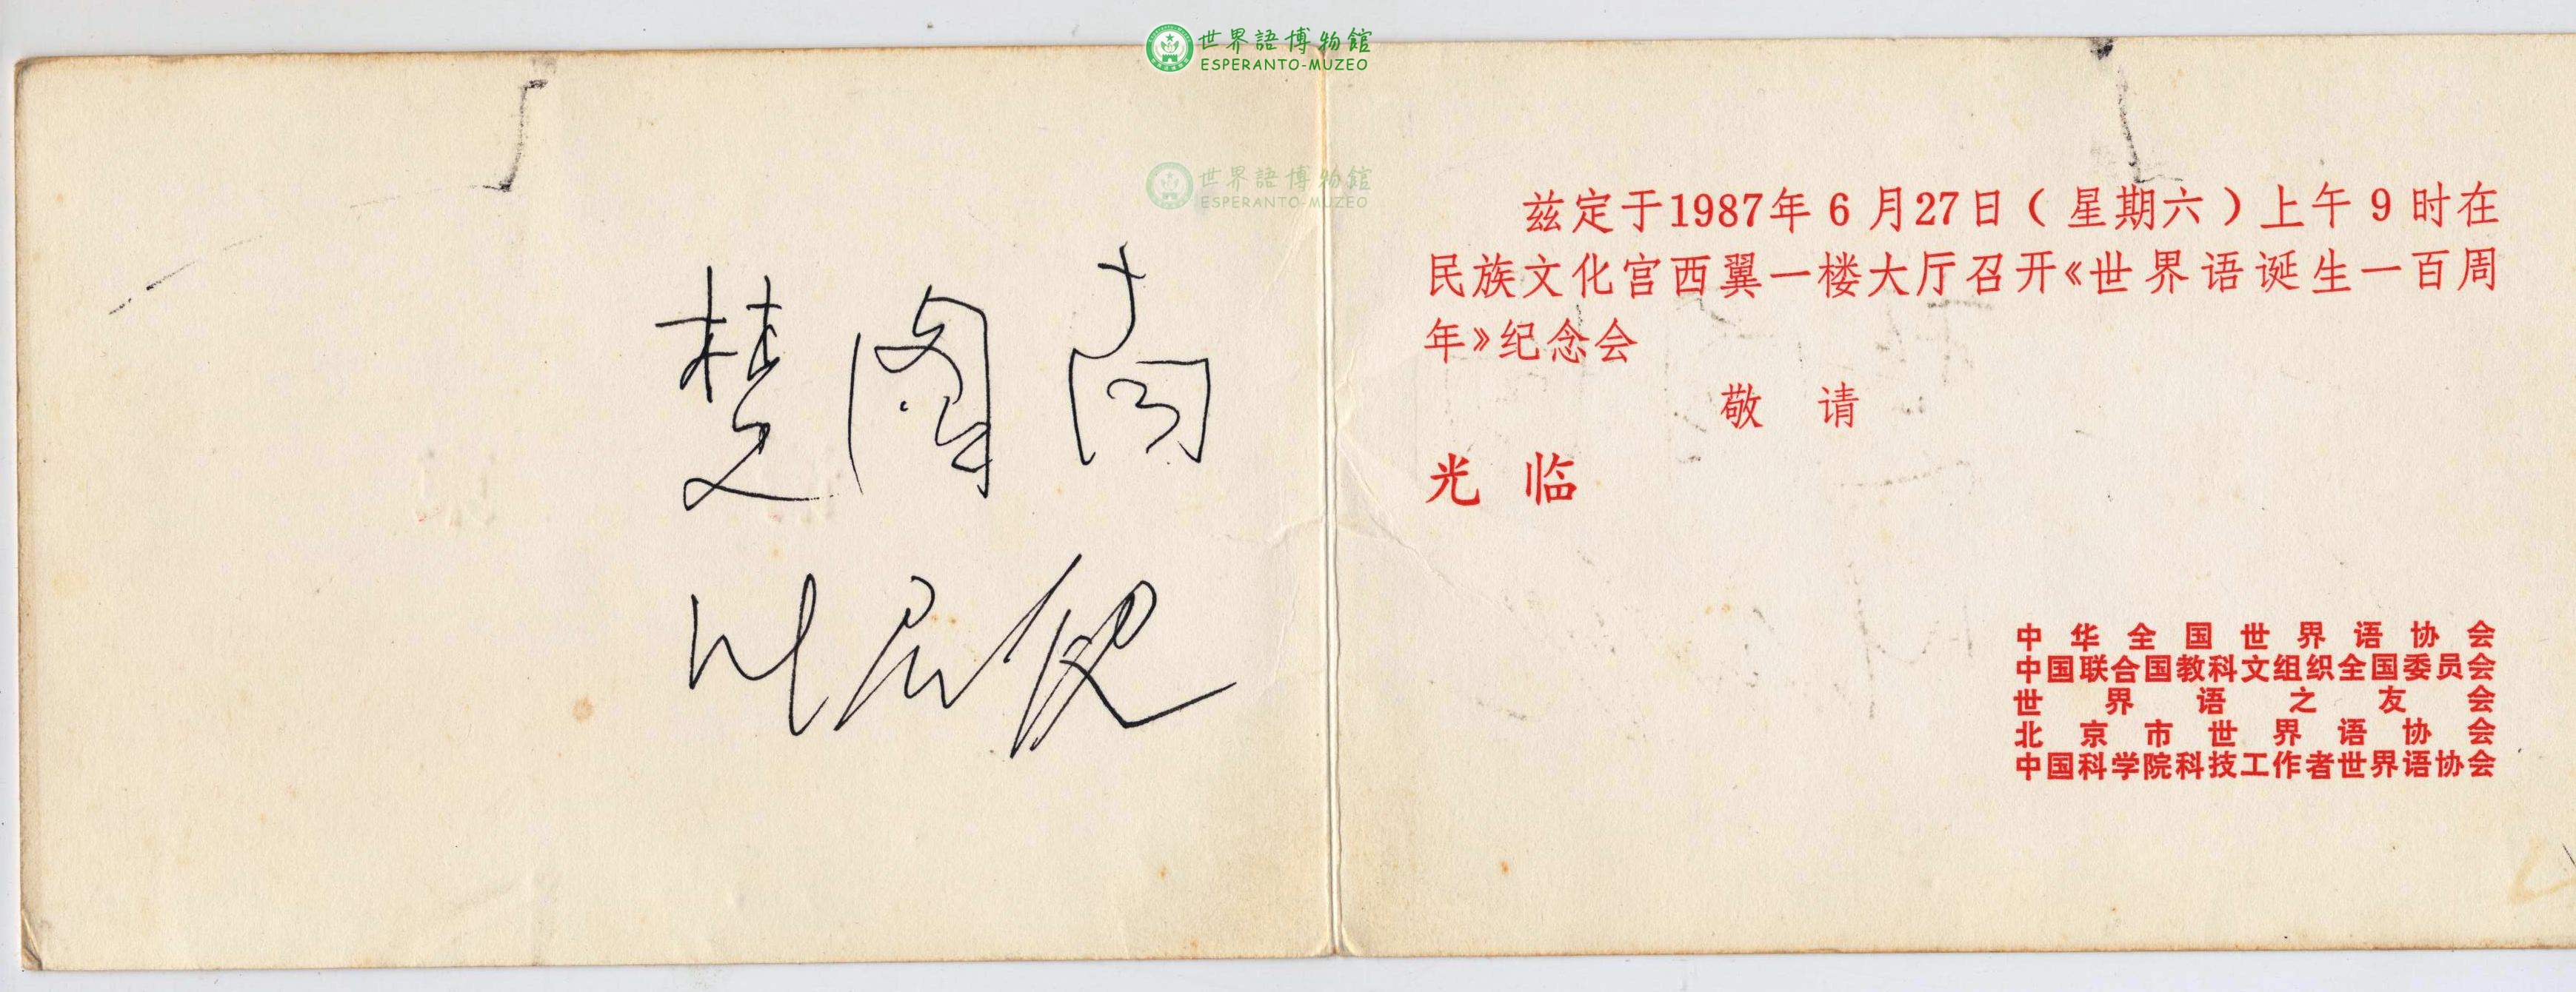 世界語博物館
ESPERANTO-MUZEO
世界語博物館
ESPERANTO-MUZEO
楚图南
兹定于1987年6月27日（星期六）上午9时在
民族文化宫西翼一楼大厅召开《世界语诞生一百周
年》纪念会
敬请
光临
中华全国世界语协会
中国联合国教科文组织全国委员会
世界语之友会
北京市世界语协会
中国科学院科技工作者世界语协会